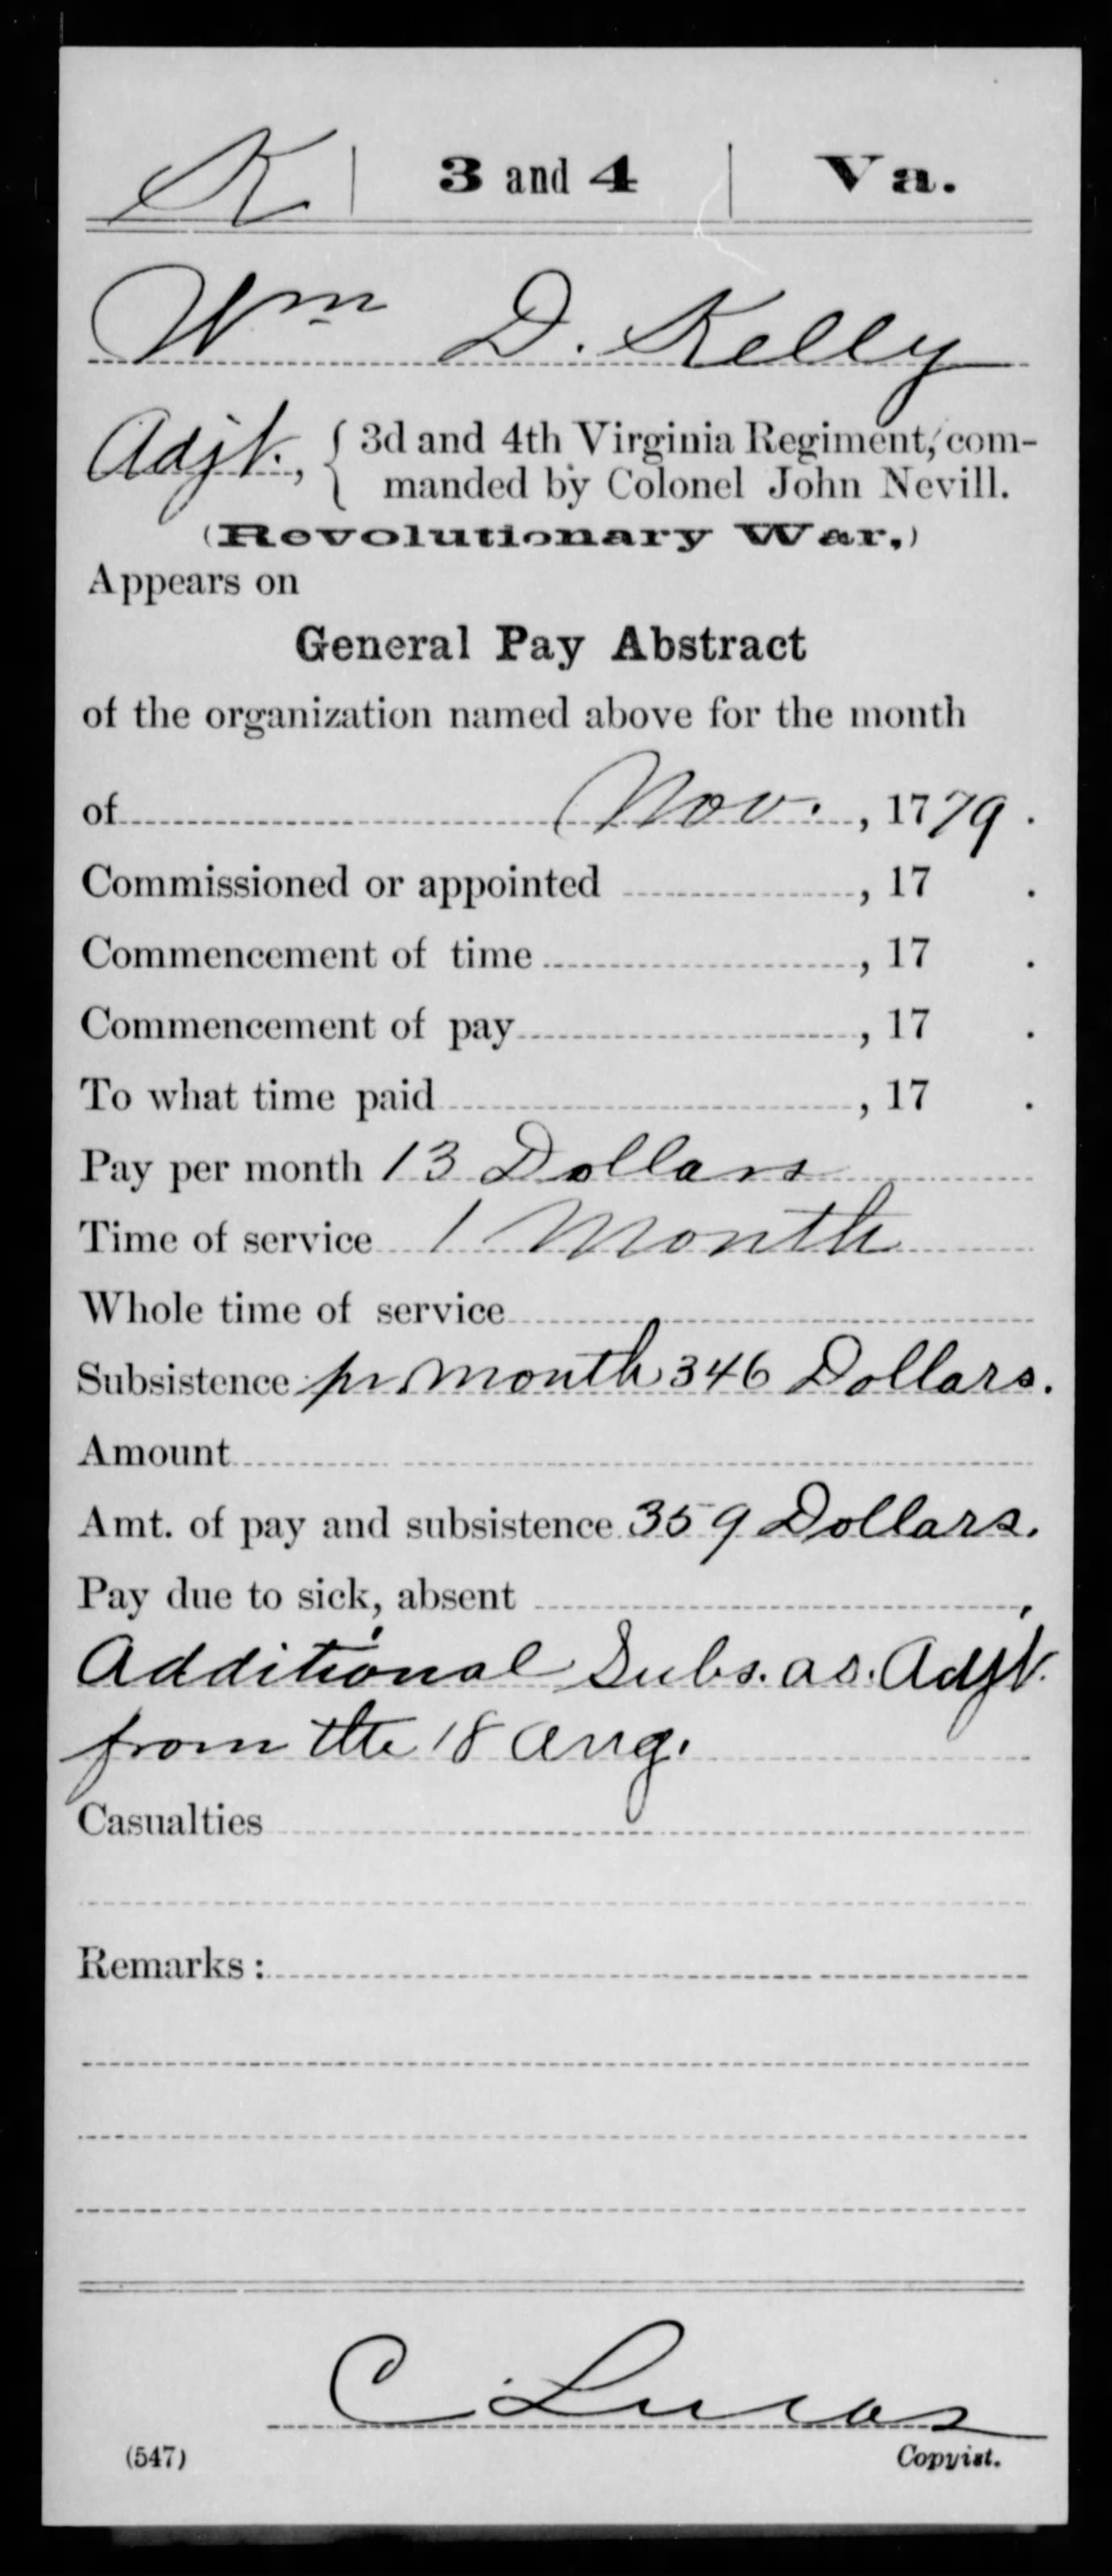 K. | 3 and 4 | Va.
Wm D. Kelly
Adjt., { 3d and 4th Virginia Regiment, com-
manded by Colonel John Nevill.
(Revolutionary War.)
Appears on
General Pay Abstract
of the organization named above for the month
of Nov., 1779.
Commissioned or appointed , 17 .
Commencement of time , 17 .
Commencement of pay , 17 .
To what time paid , 17 .
Pay per month 13 Dollars
Time of service 1 Month
Whole time of service
Subsistence pr. month 346 Dollars.
Amount
Amt. of pay and subsistence 359 Dollars.
Pay due to sick, absent
Additional Subs. as. Adjt.
from the 18 Aug.
Casualties
Remarks:
C. Lucas
(547) Copyist.